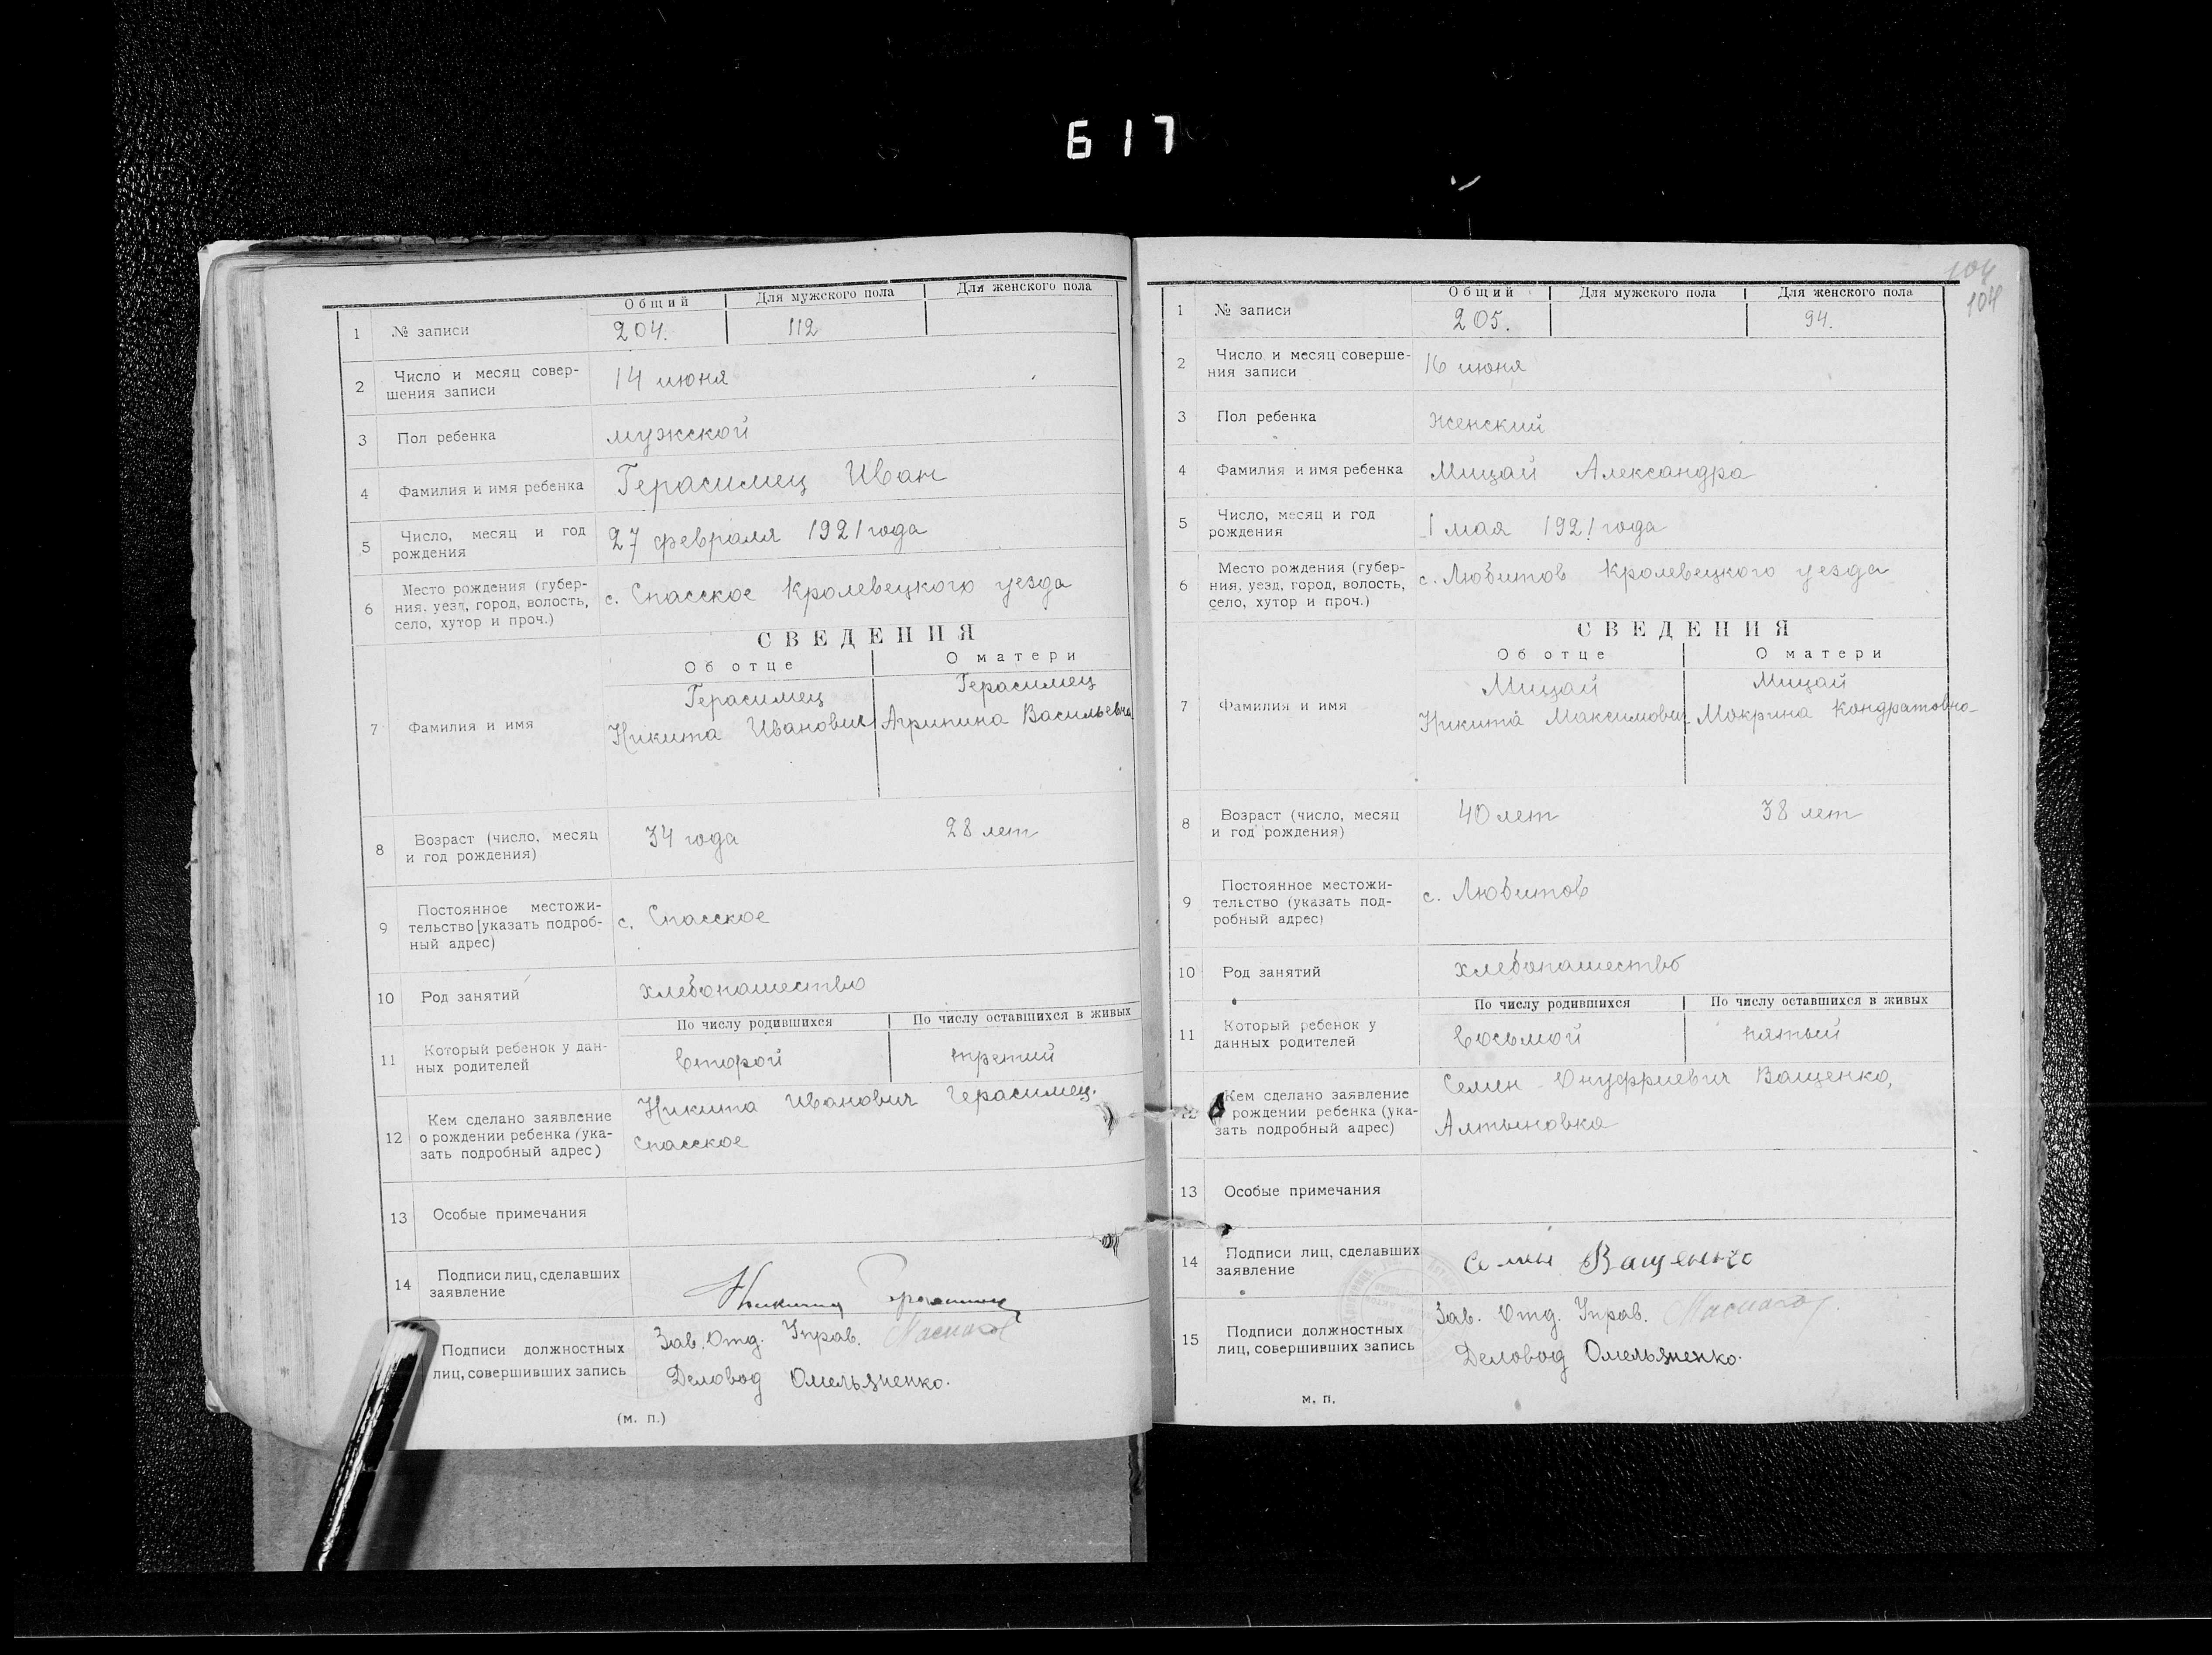 617
Общий Для мужского пола Для женского пола
1 № записи 204. 112
2 Число и месяц совер-
шения записи 14 июня
3 Пол ребенка мужской
4 Фамилия и имя ребенка Герасимец Иван
5 Число, месяц и год
рождения 27 февраля 1921 года
6 Место рождения (губер-
ния, уезд, город, волость,
село, хутор и проч.) с. Спасское Кролевецкого уезда
СВЕДЕНИЯ
Об отце О матери
7 Фамилия и имя
Герасимец Герасимец
Никита Иванович Агрипина Васильевна
8 Возраст (число, месяц
и год рождения) 34 года 28 лет
9 Постоянное местожи-
тельство [указать подроб-
ный адрес) с. Спасское
10 Род занятий хлебопашество
По числу родившихся По числу оставшихся в живых
11 Который ребенок у дан-
ных родителей второй третий
12 Кем сделано заявление
о рождении ребенка (ука-
зать подробный адрес)
Никита Иванович Герасимец.
Спасское
13 Особые примечания
14 Подписи лиц, сделавших
заявление Никита
Подписи должностных
лиц, совершивших запись
Зав. Отд. Управ.
Деловод Омельяненко.
(м. п.)
104
104
Общий Для мужского пола Для женского пола
1 № записи 205. 94.
2 Число и месяц соверше-
ния записи 16 июня
3 Пол ребенка Женский
4 Фамилия и имя ребенка Мицай Александра
5 Число, месяц и год
рождения 1 мая 1921 года
6 Место рождения (губер-
ния, уезд, город, волость,
село, хутор и проч.) с. Любитов Кролевецкого уезда
СВЕДЕНИЯ
Об отце О матери
7 Фамилия и имя
Мицай Мицай
Никита Максимович Мокрина Кондратовна
8 Возраст (число, месяц
и год рождения) 40 лет 38 лет
9 Постоянное местожи-
тельство (указать под-
робный адрес) с. Любитов
10 Род занятий хлебопашество
По числу родившихся По числу оставшихся в живых
11 Который ребенок у
данных родителей восьмой пятый
12 Кем сделано заявление
о рождении ребенка (ука-
зать подробный адрес)
Семен Онуфриевич Ващенко,
Алтыновка
13 Особые примечания
14 Подписи лиц, сделавших
заявление Семен Ващенко
15 Подписи должностных
лиц, совершивших запись
Зав. Отд. Управ.
Деловод Омельяненко.
м. п.